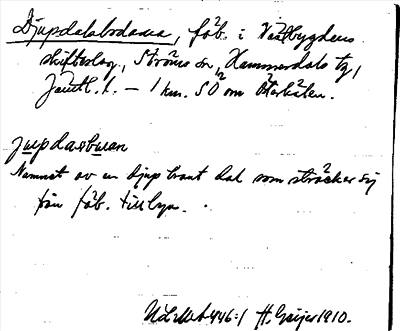 Djupdalsbodarna, fäb. i Västbygdens
skifteslag, Ströms sn, Hammerdals tg,
Jämtl. l. — 1 km. SÖ om Öterkälen.
jupdasbuan
Namnet av en djup brant dal som sträcker sig
från fäb. till byn.
ULMA 446:1 H. Geijer 1910.